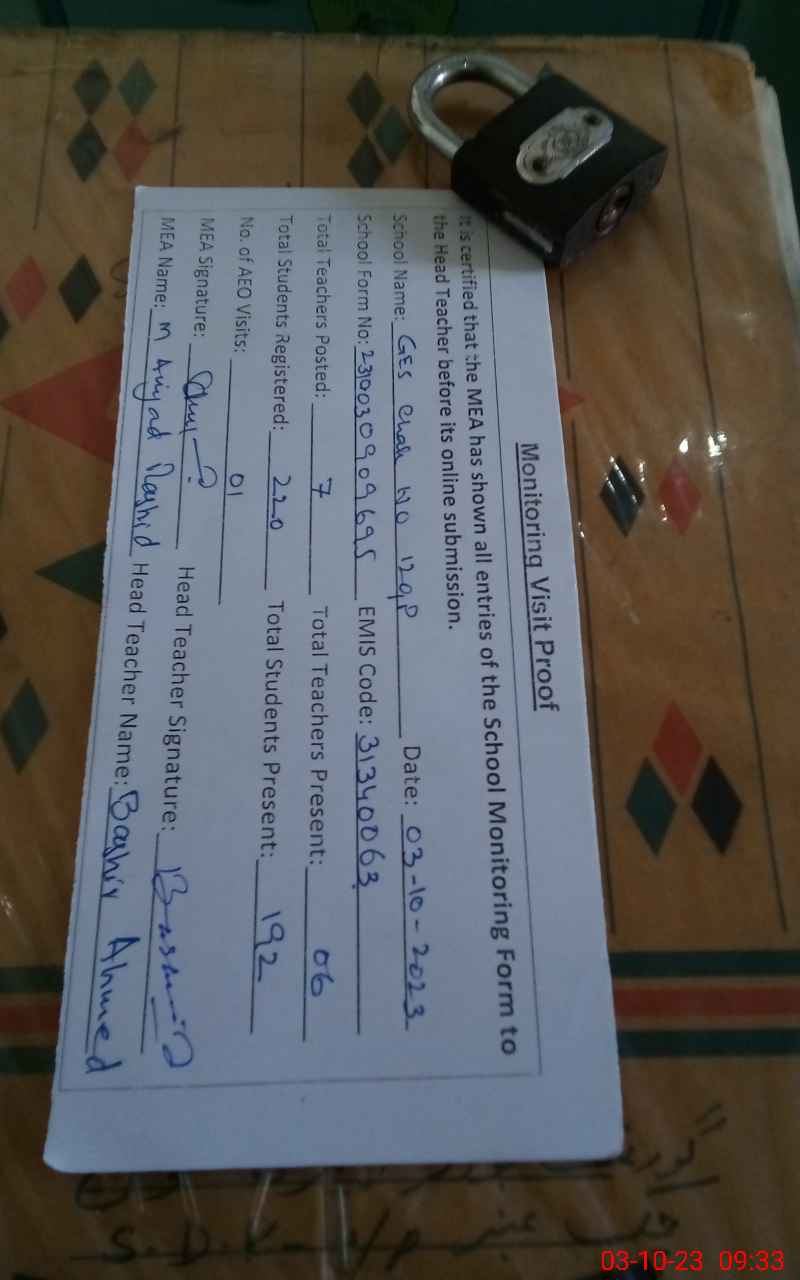 Monitoring Visit Proof
It is certified that the MEA has shown all entries of the School Monitoring Form to
the Head Teacher before its online submission.
School Name: GES Chak No 129P Date: 03-10-2023
School Form No: 2310030909695 EMIS Code: 31340063
Total Teachers Posted: 7 Total Teachers Present: 06
Total Students Registered: 220 Total Students Present: 192
No. of AEO Visits: 01
MEA Signature: Head Teacher Signature:
MEA Name: M Amjad Rashid Head Teacher Name: Bashir Ahmed
S.D.K
03-10-23 09:33